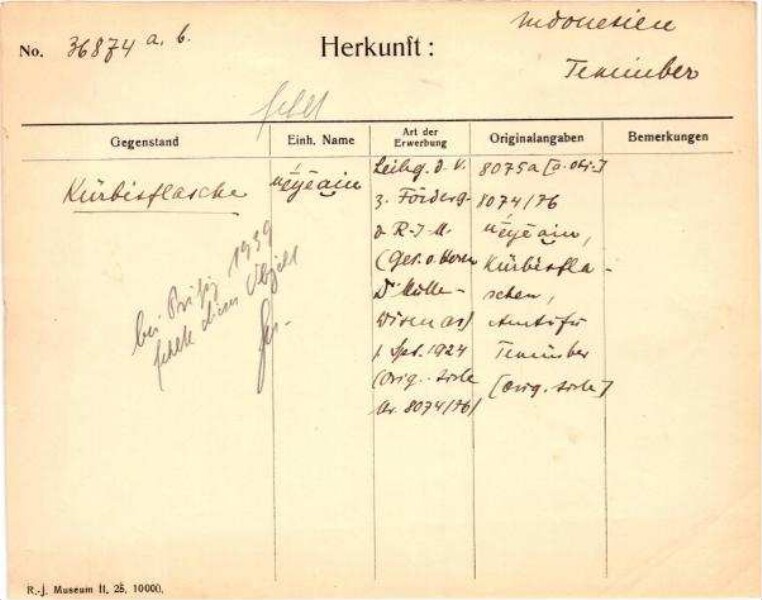 No. 36874 a. b.
Herkunft:
Indonesien
Tenimber
fehlt
Gegenstand
Einh. Name
Art der
Erwerbung
Originalangaben
Bemerkungen
Kürbisflasche
Leihg. d. V.
z. Förderg.
d. R-J-M.
(Ges. v. Herrn
Dr
1 Spt. 1924
(Orig.-Liste
Nr. 8074/76)
8075a
8074/76
Kürbisfla-
schen,
Tenimber
[Orig. Liste]
bei Prüfg 1939
fehlte dieses Objekt
R.-J. Museum II. 25, 10000.